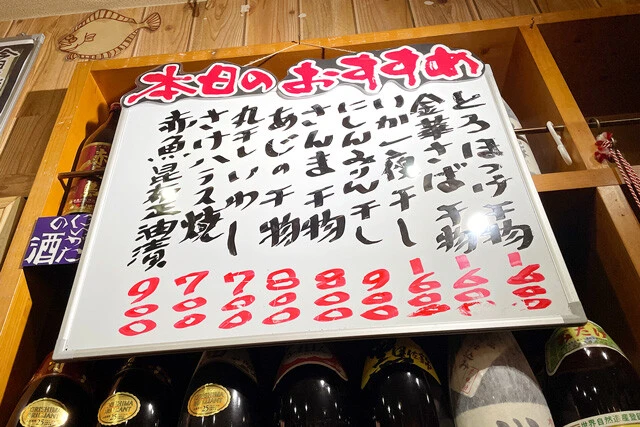 本日のおすすめ
とろほっけ干物 1600
金華さば干物 1600
いか一夜干し 1600
にしんみりん干し 900
さんま干物 800
あじの干物 800
丸干しいわし 700
さけハラス焼 700
赤魚昆布正油漬 900
酒